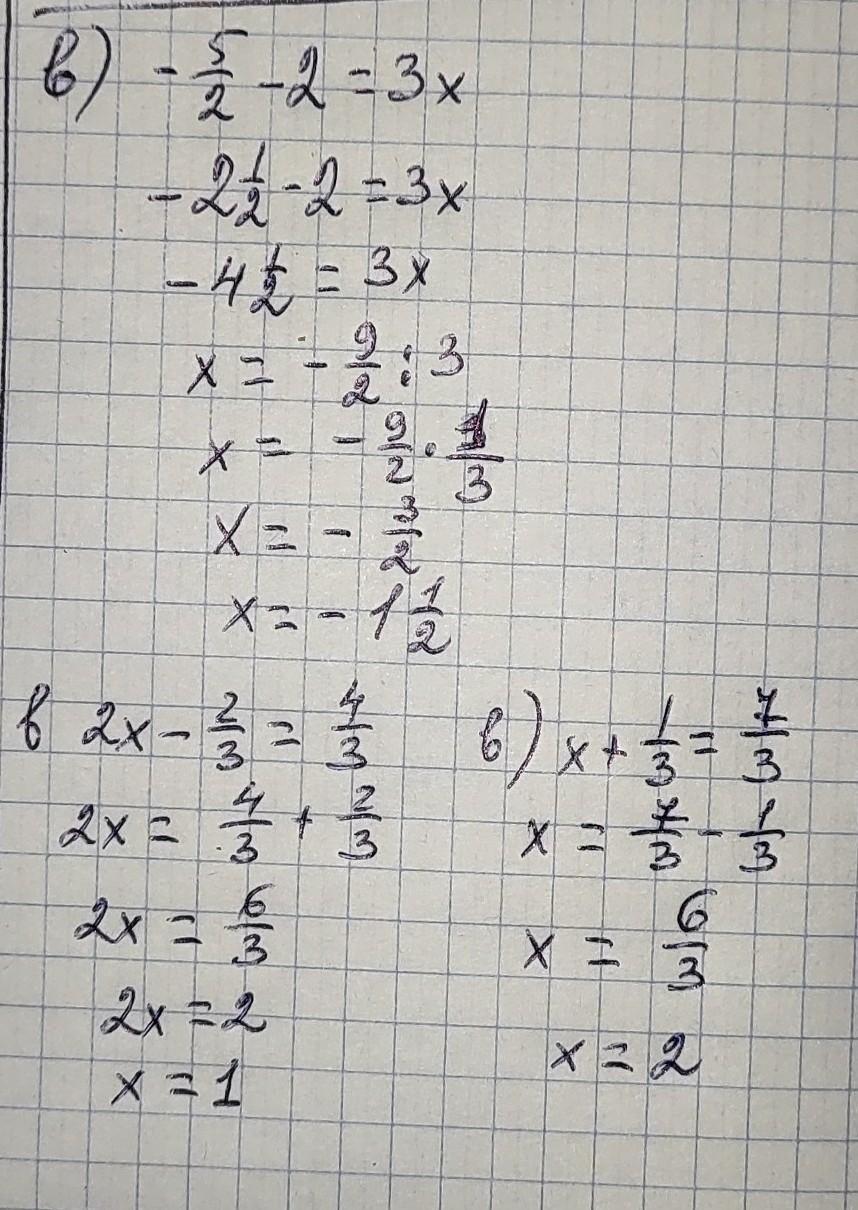 в) - 5/2 - 2 = 3x
- 2 1/2 - 2 = 3x
- 4 1/2 = 3x
x = - 9/2 : 3
x = - 9/2 · 1/3
x = - 3/2
x = - 1 1/2
в 2x - 2/3 = 4/3
2x = 4/3 + 2/3
2x = 6/3
2x = 2
x = 1
в) x + 1/3 = 7/3
x = 7/3 - 1/3
x = 6/3
x = 2